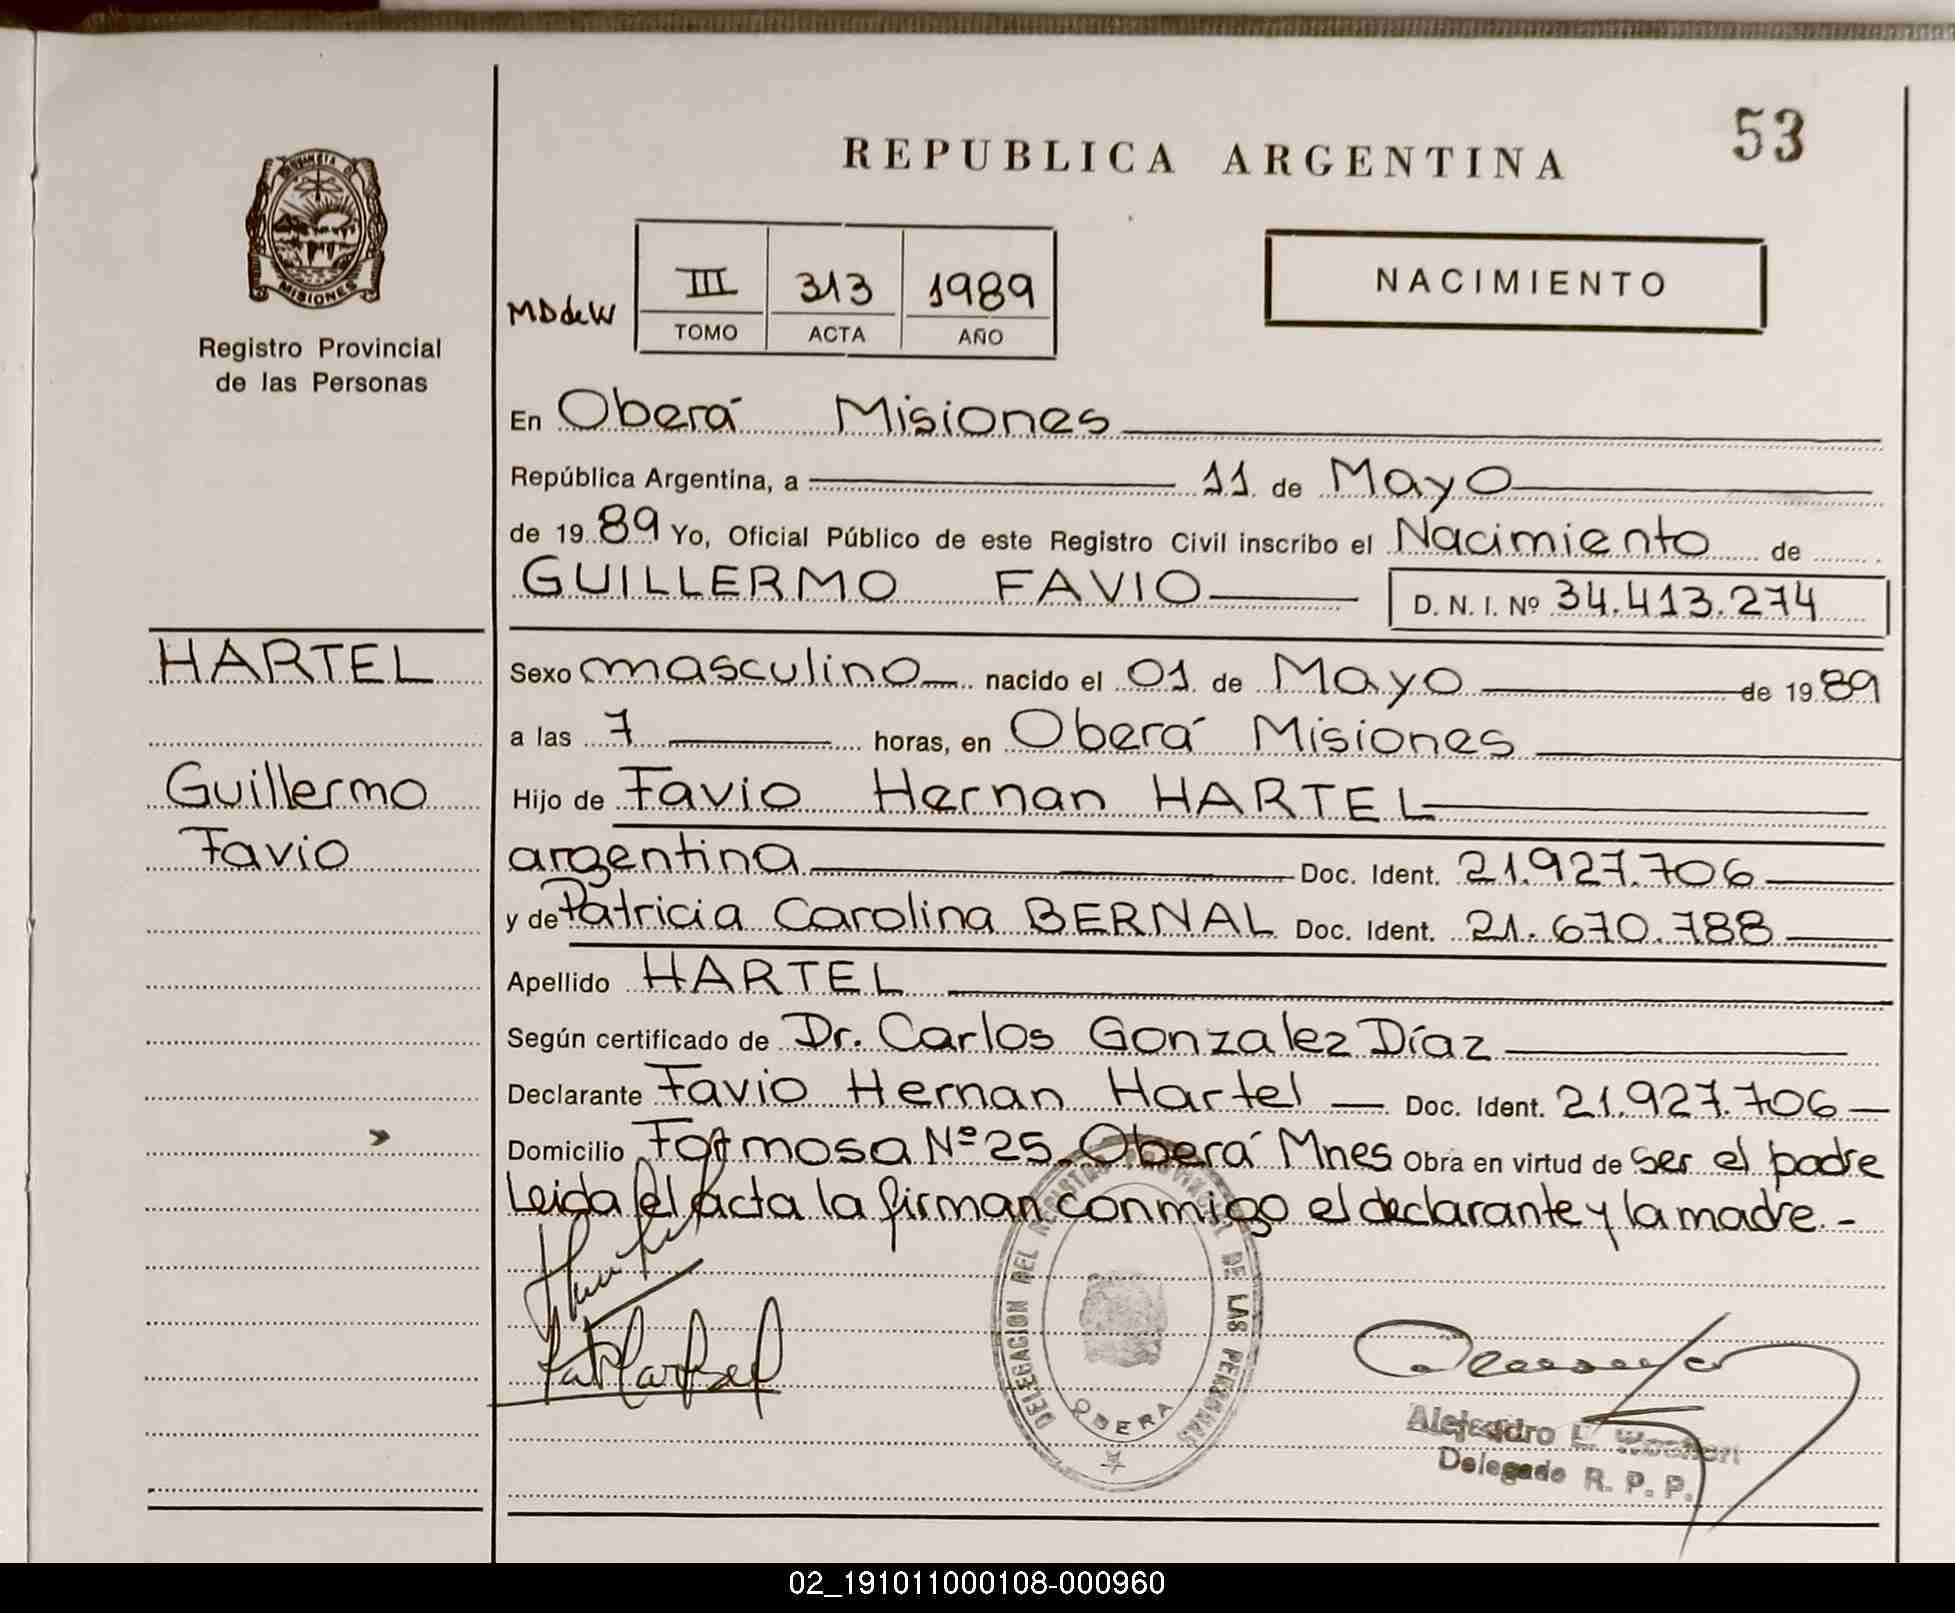 53
REPUBLICA ARGENTINA
PROVINCIA
MISIONES
Registro Provincial
de las Personas
MD de W
III 313 1989
TOMO ACTA AÑO
NACIMIENTO
En Oberá Misiones
República Argentina, a 11 de Mayo
de 1989 Yo, Oficial Público de este Registro Civil inscribo el Nacimiento de
GUILLERMO FAVIO D. N. I. Nº 34.413.274
HARTEL
Guillermo
Favio
Sexo masculino nacido el 01 de Mayo de 1989
a las 7 horas, en Oberá Misiones
Hijo de Favio Hernan HARTEL
argentina Doc. Ident. 21.927.706
y de Patricia Carolina BERNAL Doc. Ident. 21.670.788
Apellido HARTEL
Según certificado de Dr. Carlos Gonzalez Díaz
Declarante Favio Hernan Hartel Doc. Ident. 21.927.706
Domicilio Formosa Nº 25. Oberá Mnes Obra en virtud de ser el padre
Leida el acta la firman conmigo el declarante y la madre.-
DELEGACION DEL REGISTRO PROVINCIAL DE LAS PERSONAS
OBERA
Alejandro L.
Delegado R. P. P.
02_191011000108-000960